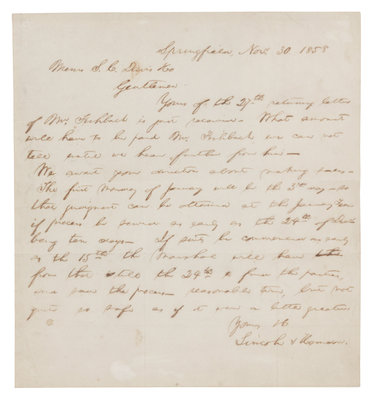 Springfield, Nov. 30. 1858
Messrs S. C. Davis & Co
Gentlemen.
Yours of the 27th returning letter
of Mr. Fishback is just received. What amount
will have to be paid Mr. Fishback, we can not
tell until we hear further from him—
We await your direction about making sales—
The first Monday of January will be the 3rd day— so
that judgment can be obtained at the January Term
if process be served as early as the 24th of Dec.
being ten days— If suits be commenced as early
as the 15th the Marshal will have
from that till the 24th to find the parties,
and serve the process— reasonable time, but not
quite so safe as if it were a little greater
Yours &c
Lincoln & Herndon.